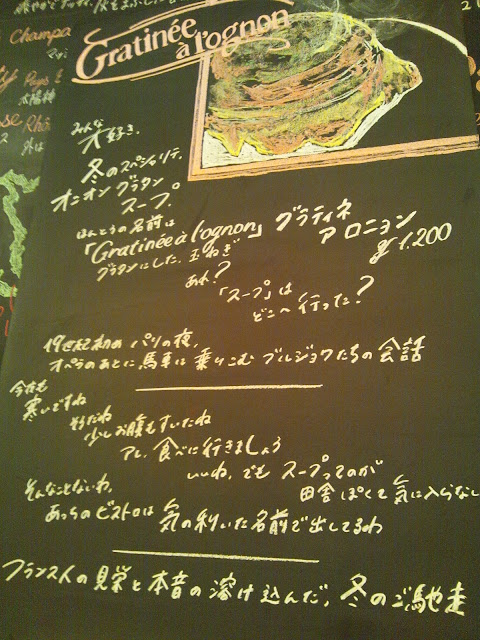 Champa
Gratinée
à l'ognon
みんな
大好き、
冬のスペシャリテ、
オニオングラタン
スープ。
ほんとうの名前は
「Gratinée à l'ognon」グラティネ
アロニョン
¥1,200
グラタンにした玉ねぎ
あれ？
「スープ」は
どこへ行った？
19世紀初め パリの夜、
オペラのあとに馬車に乗りこむブルジョワたちの会話
今夜も
寒いですね
そうだね
少しお腹もすいたね
アレ、食べに行きましょう
いいね、でもスープってのが
田舎ぽくて気に入らない
そんなことないわ、
あっちのビストロは気の利いた名前で出してるわ
フランス人の見栄と本音の溶け込んだ、冬のご馳走